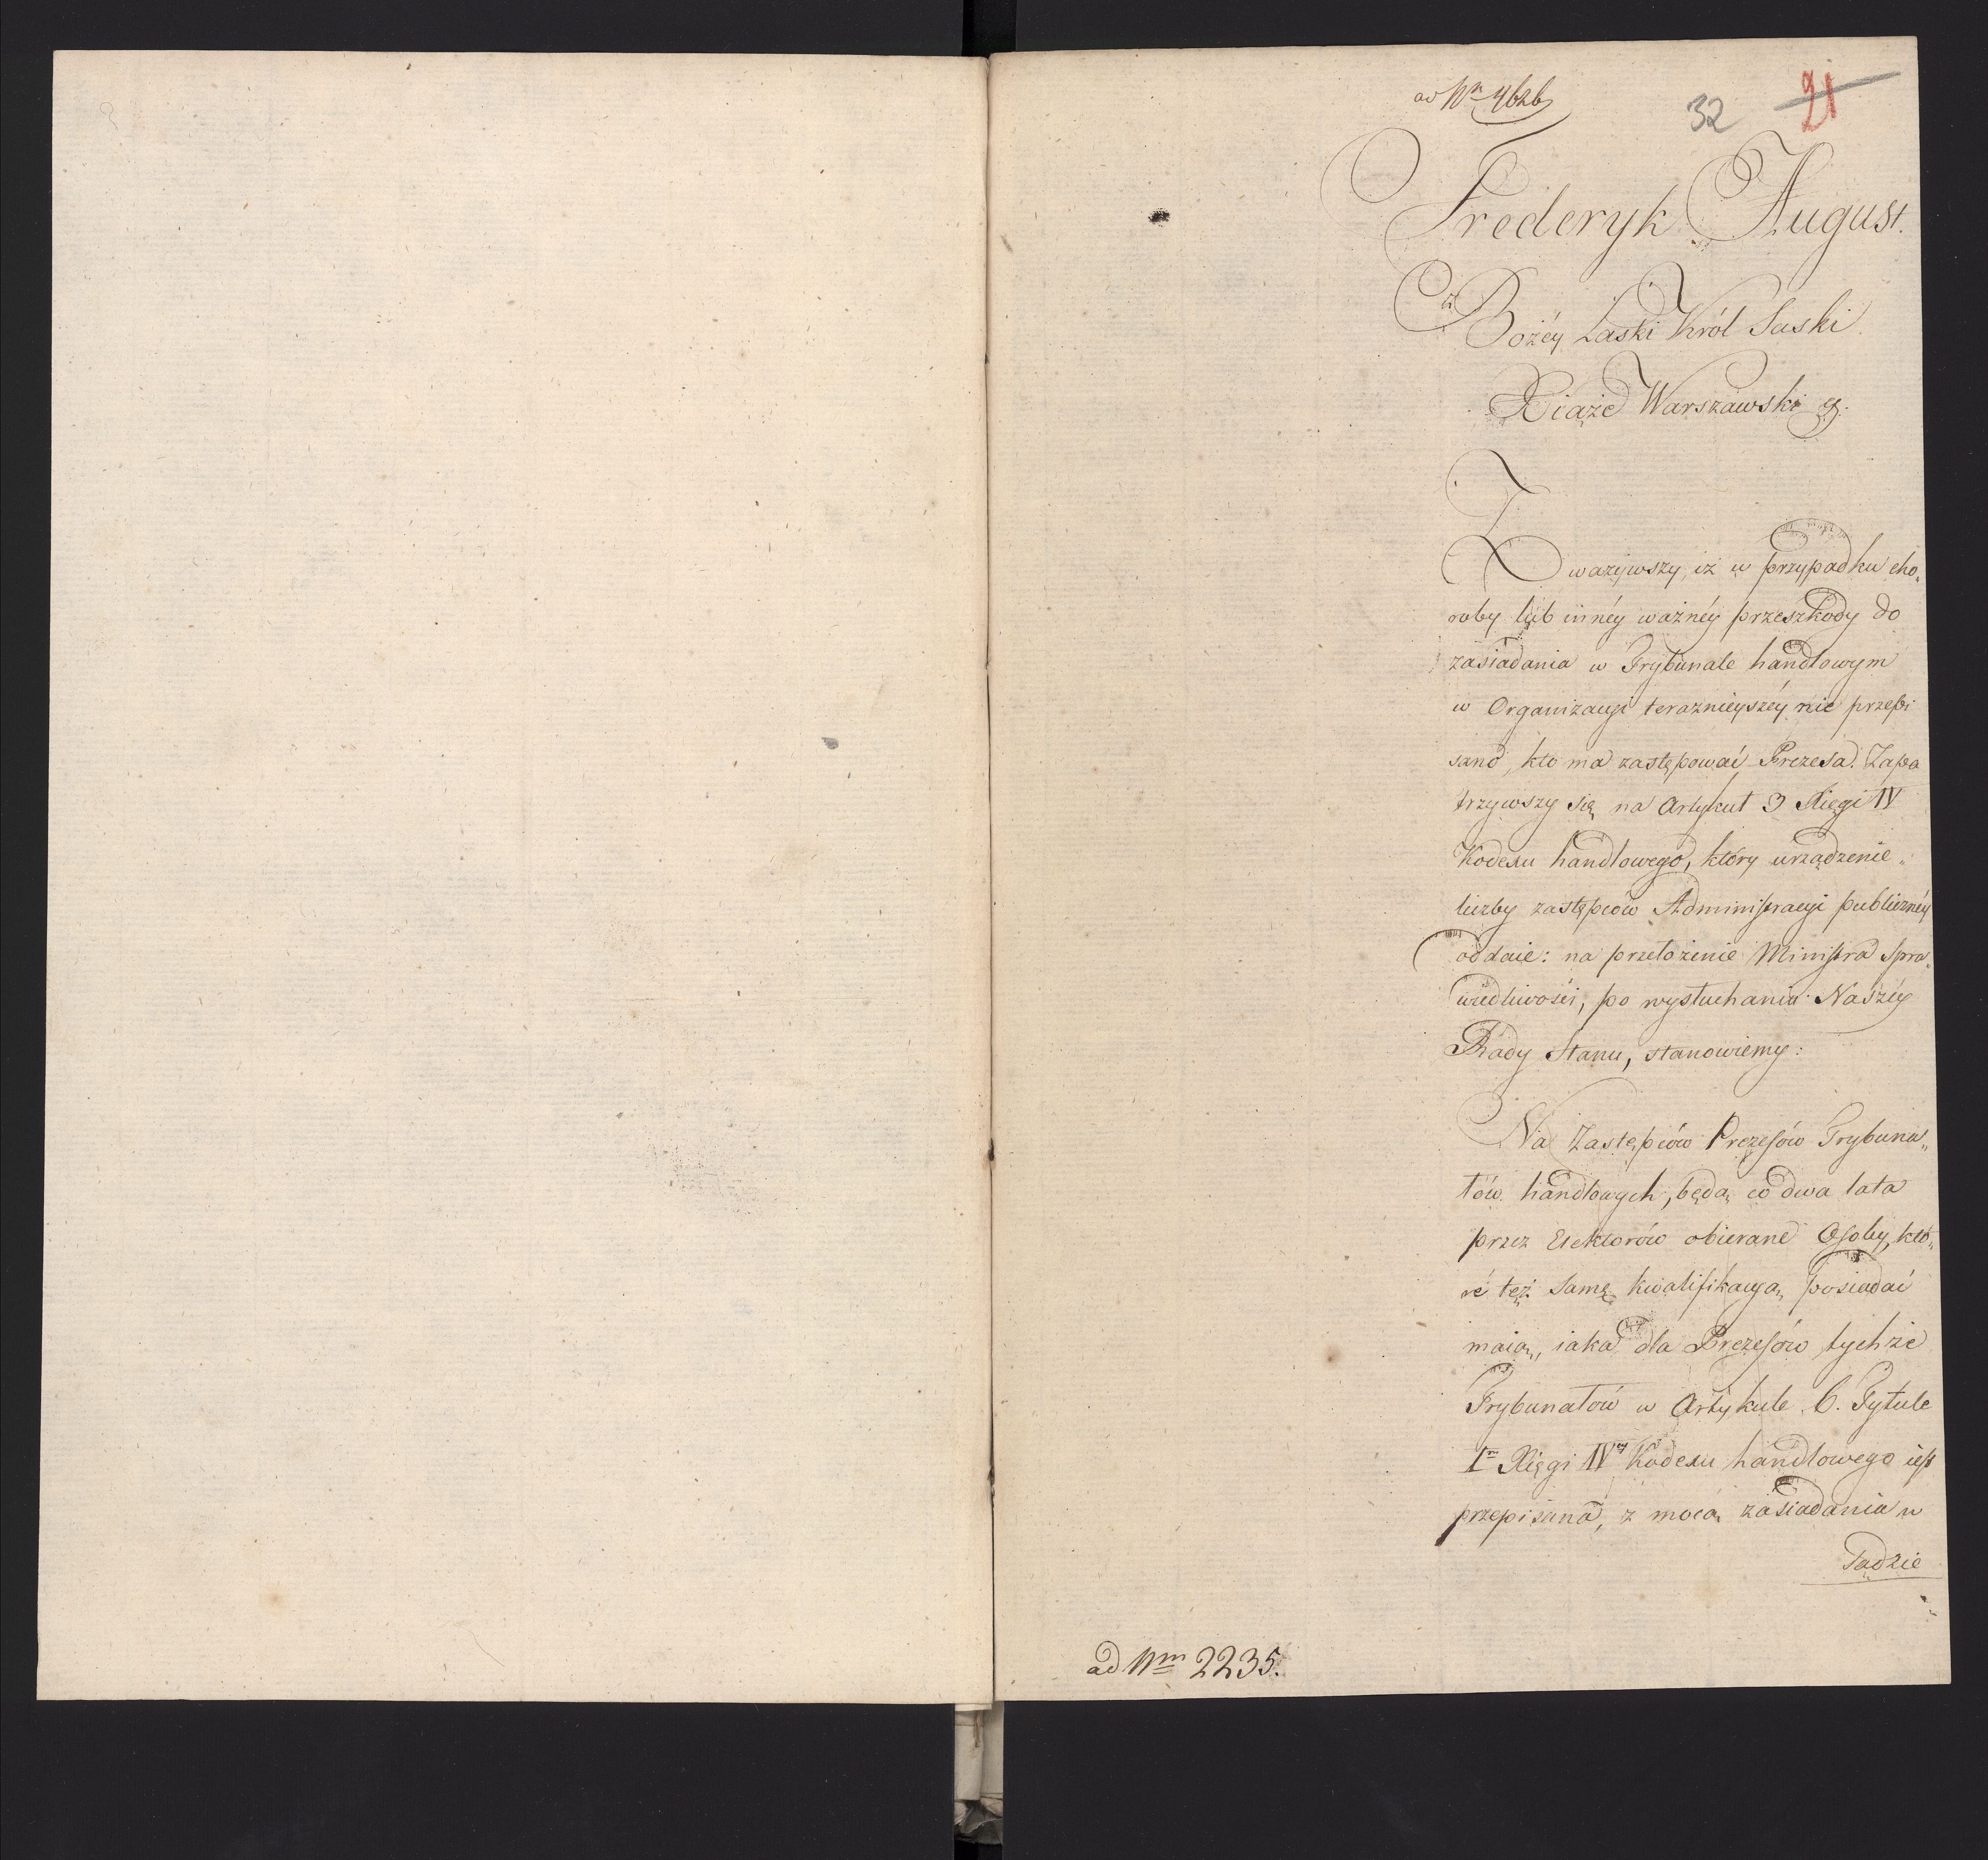 ad Nr 4626
32 21
Frederyk August.
z Bożéy Łaski Król Saski
Xiąże Warszawski &.
Zważywszy, iż w przypadku cho„
roby lub innéy ważnéy przeszkody do
zasiadania w Trybunale handlowym
w Organizacyi teraznieyszéy nie przepi
sano, kto ma zastępować Prezesa. Zapa
trzywszy się na Artykuł 3 Xięgi IV
Kodexu handlowego, który urządzenie„
liczby zastępców Administracyi publicznéy
oddaie: na przełożenie Ministra Spra„
wiedliwości, po wysłuchaniu Naszéy
Rady Stanu, stanowiemy:
Na Zastępców Prezesów Trybuna„
łów handlowych, będą co dwa lata
przez Elektorów obierane Osoby, któ„
ré też samę kwalifikacyą posiadać
maią, iaka dla Prezesów tychże
Trybunałów w Artykule 6. Tytule
Im Xięgi IVéy Kodexu handlowego iest
przepisana, z mocą zasiadania w
Sądzie
ad Nrm 2235.